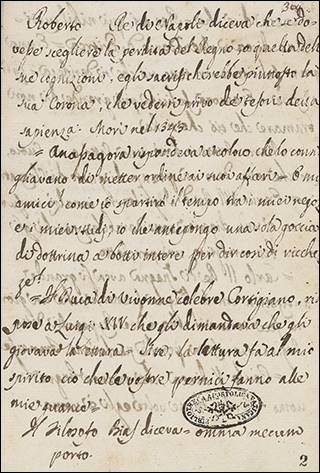 Roberto Re di Napoli diceva che se do-
vesse scegliere la perdita del Regno, o quella delle
sue cognizioni, egli sacrificherebbe piuttosto la
sua Corona, che vedersi privo de tesori della
sapienza. Morì nel 1343.
= Anassagora rispondeva a coloro che lo consi-
gliavano di metter ordine ai suoi affari – O miei
amici! come io spartirò il tempo tra i miei nego-
zi e i miei studi, io che antepongo una sola goccia
di dottrina a botti intere per dir così di ricchez-
ze!
= Il Duca di Vivonne celebre Cortigiano, ri-
spose a Luigi XIV che gli dimandava che gli
giovava la lettura – Sire, la lettura fa al mio
spirito ciò che le vostre pernici fanno alle
mie guancie =
Il Filosofo Bias diceva = omnia mecum
porto.
BIBLIOTECA APOSTOLICA VATICANA
2